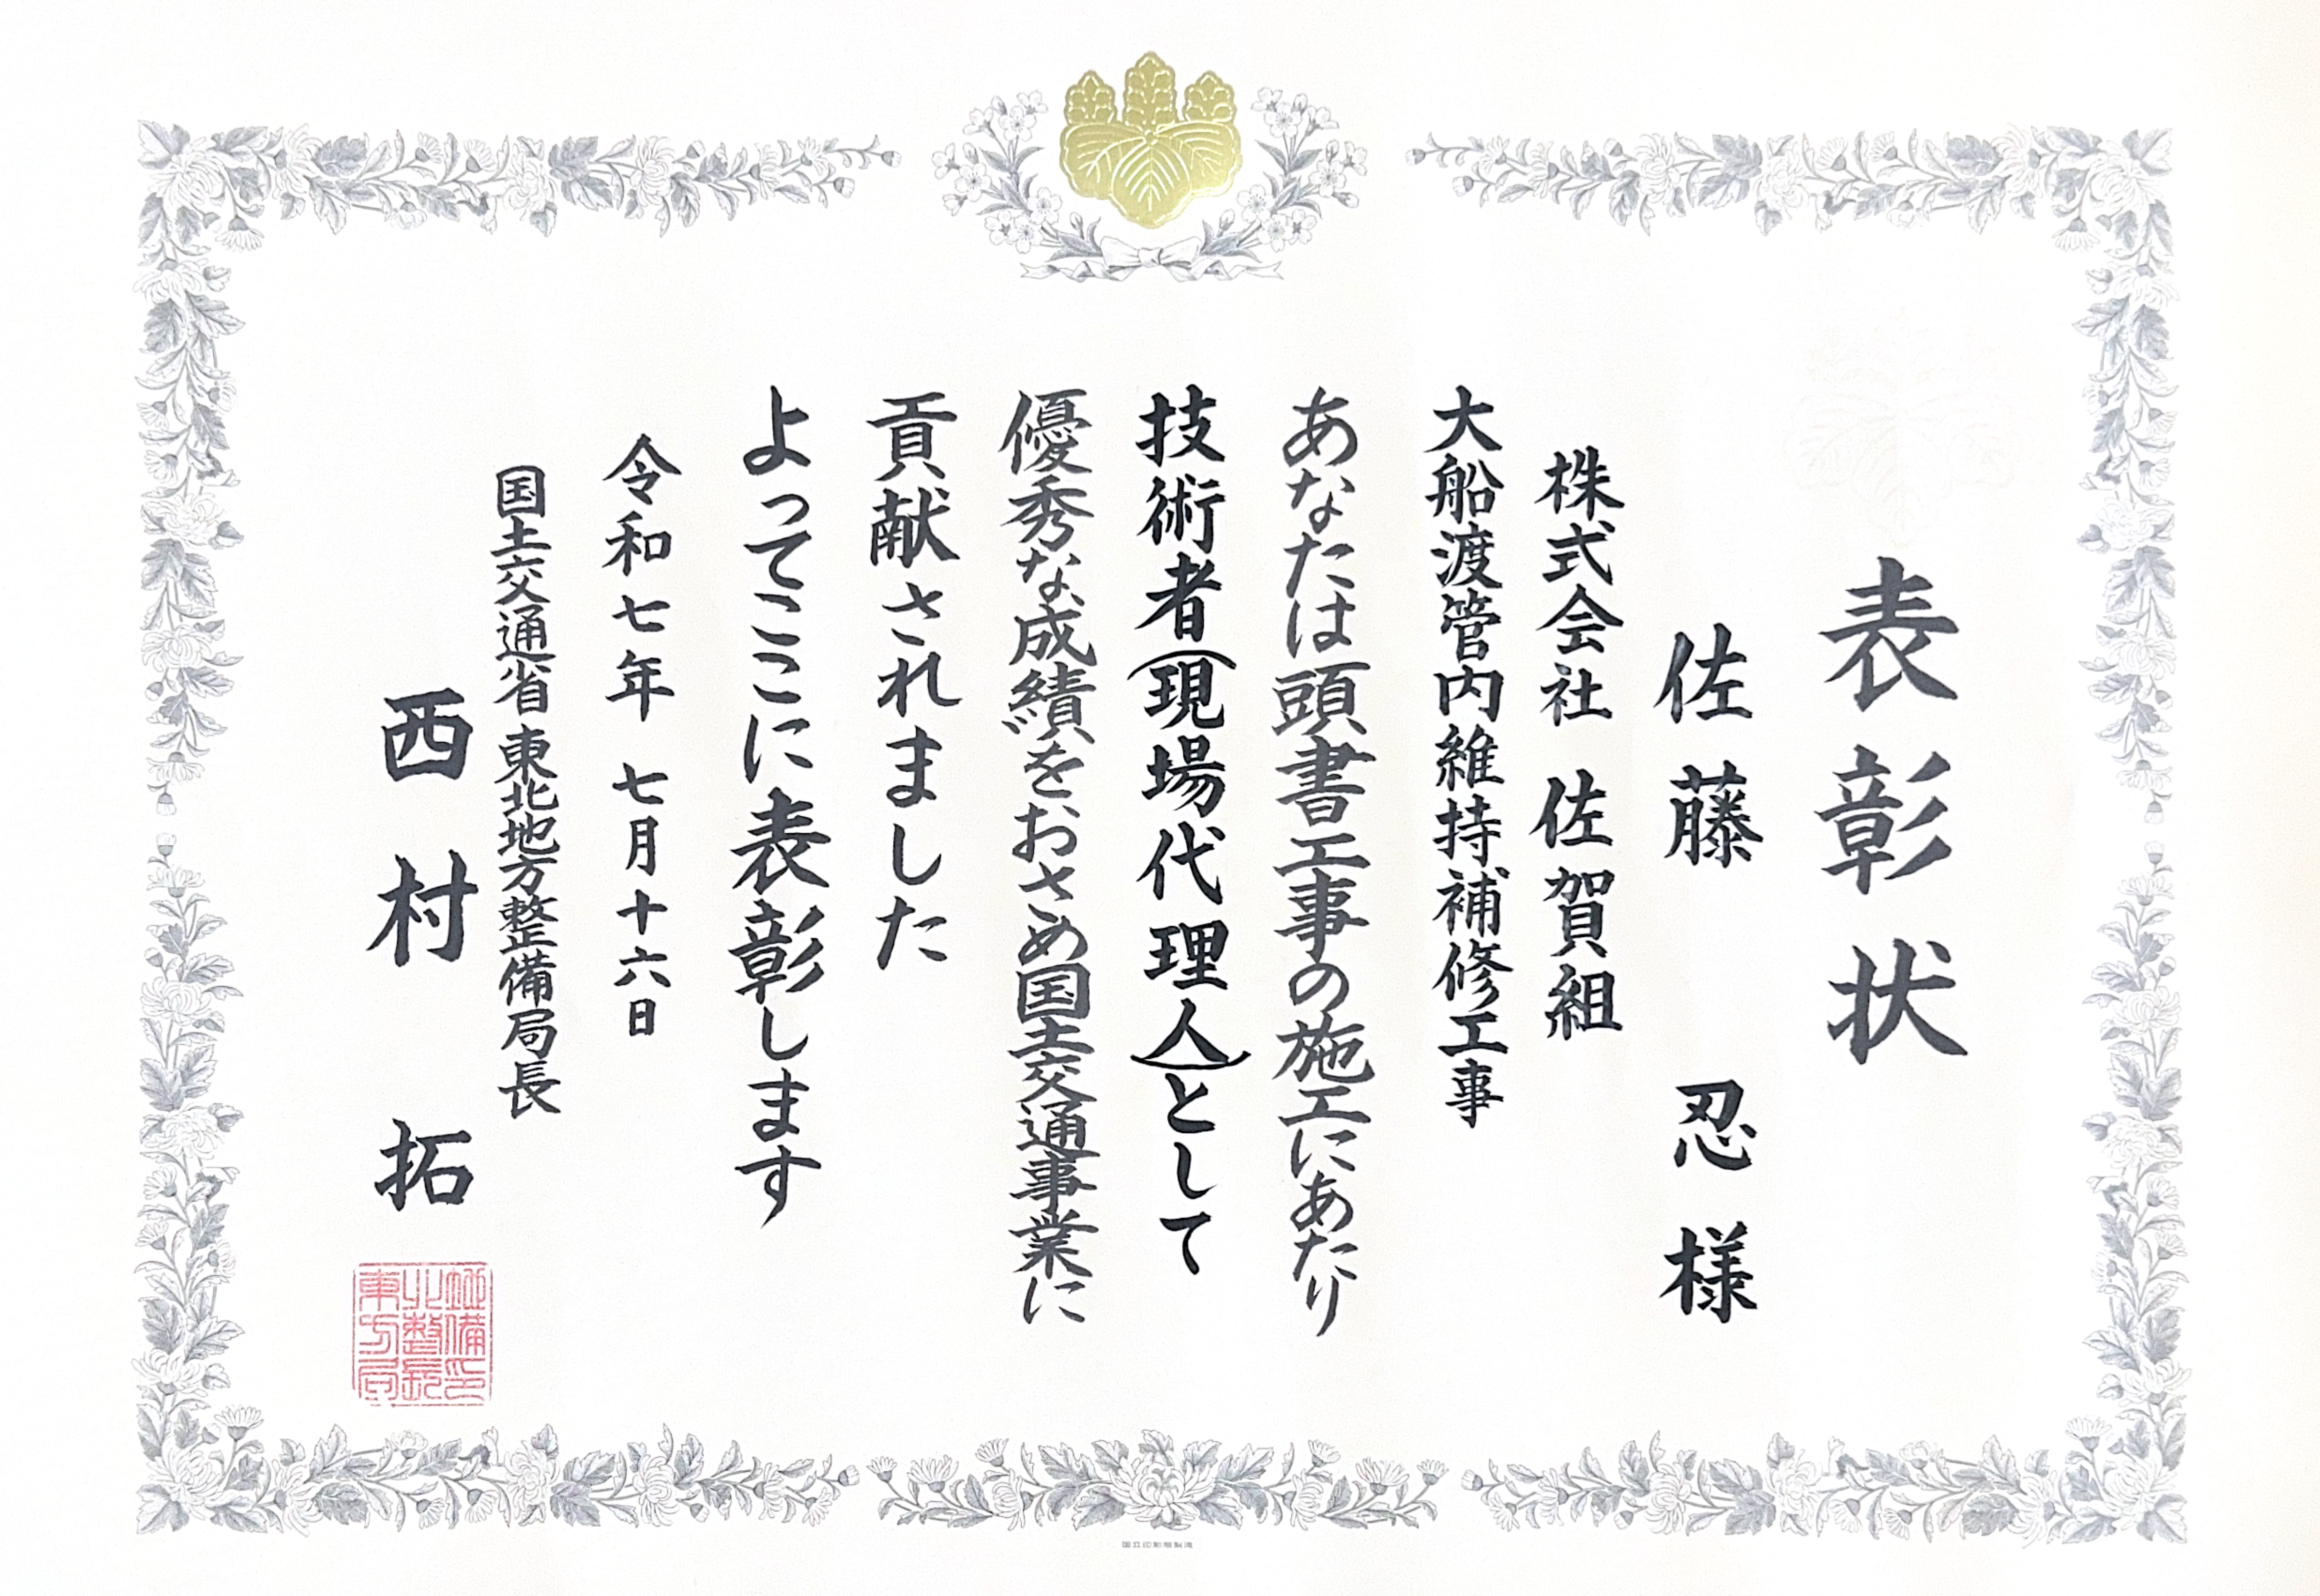 表彰状
佐藤 忍 様
株式会社 佐賀組
大船渡管内維持補修工事
あなたは頭書工事の施工にあたり
技術者(現場代理人)として
優秀な成績をおさめ国土交通事業に
貢献されました
よってここに表彰します
令和七年 七月十六日
国土交通省 東北地方整備局長
西村 拓